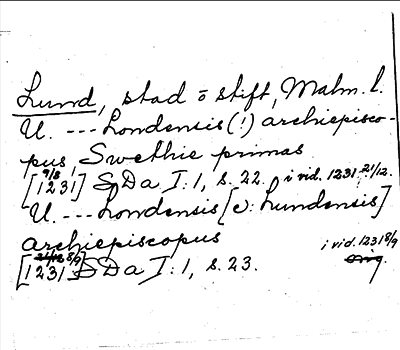 Lund, stad o stift, Malm. l.
U. --- Londensis (!) archiepisco-
pus Swethie primas
[1231 9/8] SDa I: 1, s. 22. i vid. 1231 21/12.
U. --- Londensis [ɔ: Lundensis]
archiepiscopus
[1231 8/9] SDa I: 1, s. 23. i vid. 1231 8/9
orig.